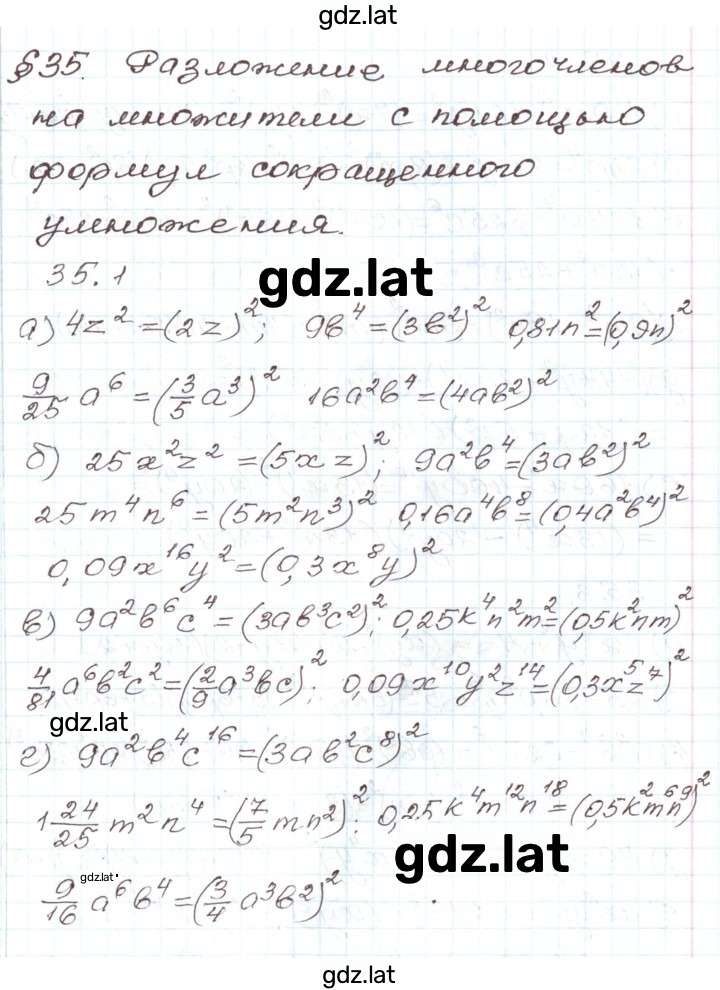 gdz.lat
§35. Разложение многочленов
на множители с помощью
формул сокращенного
умножения.
35.1
gdz.lat
а) 4z² = (2z)²; 9в⁴ = (3в²)² 0,81n² = (0,9n)²
9/25 a⁶ = (3/5 a³)² 16a²в⁴ = (4aв²)²
б) 25x²z² = (5xz)²; 9a²в⁴ = (3aв²)²
25m⁴n⁶ = (5m²n³)² 0,16a⁴в⁸ = (0,4a²в⁴)²
0,09x¹⁶y² = (0,3x⁸y)²
в) 9a²в⁶c⁴ = (3aв³c²)²; 0,25k⁴n²m² = (0,5k²nm)²
4/81 a⁶в²c² = (2/9 a³вc)²; 0,09x¹⁰y²z¹⁴ = (0,3x⁵z⁷)²
gdz.lat
г) 9a²в⁴c¹⁶ = (3aв²c⁸)²
1 24/25 m²n⁴ = (7/5 mn²)²; 0,25k⁴m¹²n¹⁸ = (0,5k²m⁶n⁹)²
gdz.lat
gdz.lat
9/16 a⁶в⁴ = (3/4 a³в²)²
gdz.lat